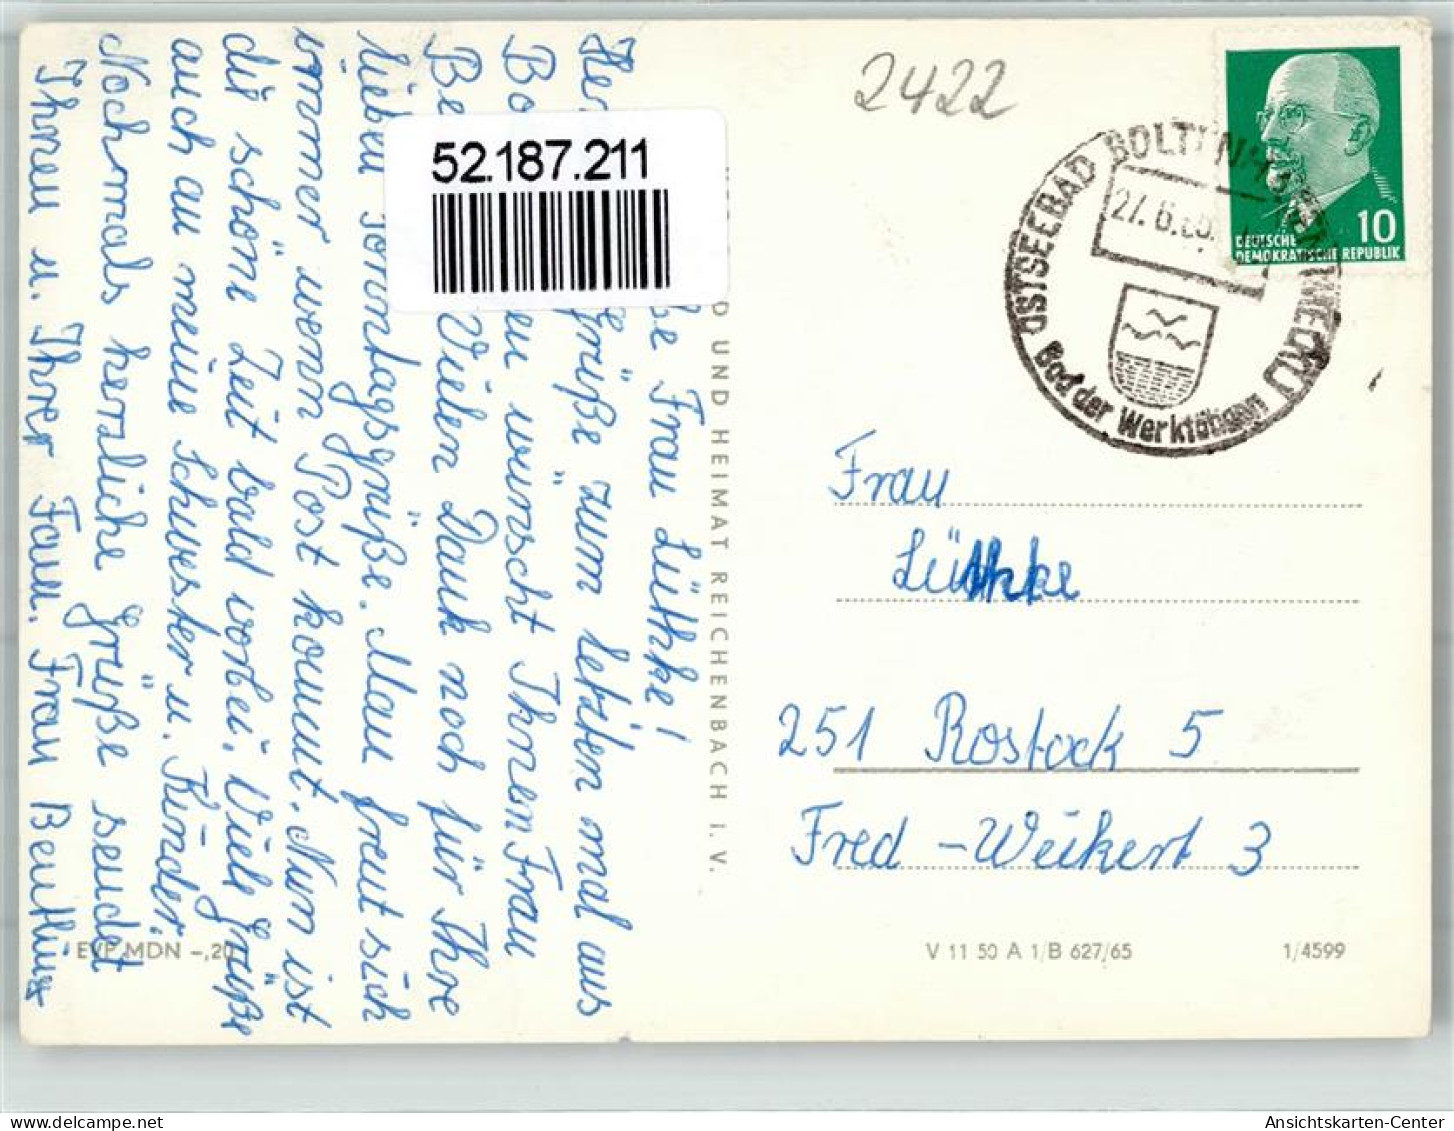 be Frau Lüthke!
grüße zum letzten mal aus
Bo en wünscht Ihnen Frau
Be Vielen Dank noch für Ihre
lieben Sonntagsgrüße. Man freut sich
immer wenn Post kommt. Nun ist
die schöne Zeit bald vorbei. Viele Grüße
auch an meine Schwester u. Kinder.
Nochmals herzliche Grüße sendet
Ihnen u. Ihrer Fam. Frau
52.187.211
D UND HEIMAT REICHENBACH I. V.
EVP MDN -,20
2422
OSTSEEBAD BOLTENHAGEN (MECKL)
27. 6.
Bad der Werktätigen
10
DEUTSCHE
DEMOKRATISCHE REPUBLIK
Frau
Lüthke
251 Rostock 5
Fred-Weikert 3
V 11 50 A 1/B 627/65
1/4599
Ansichtskarten-Center